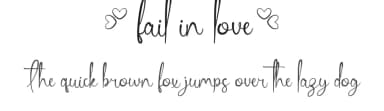 fail in love
The quick brown fox jumps over the lazy dog